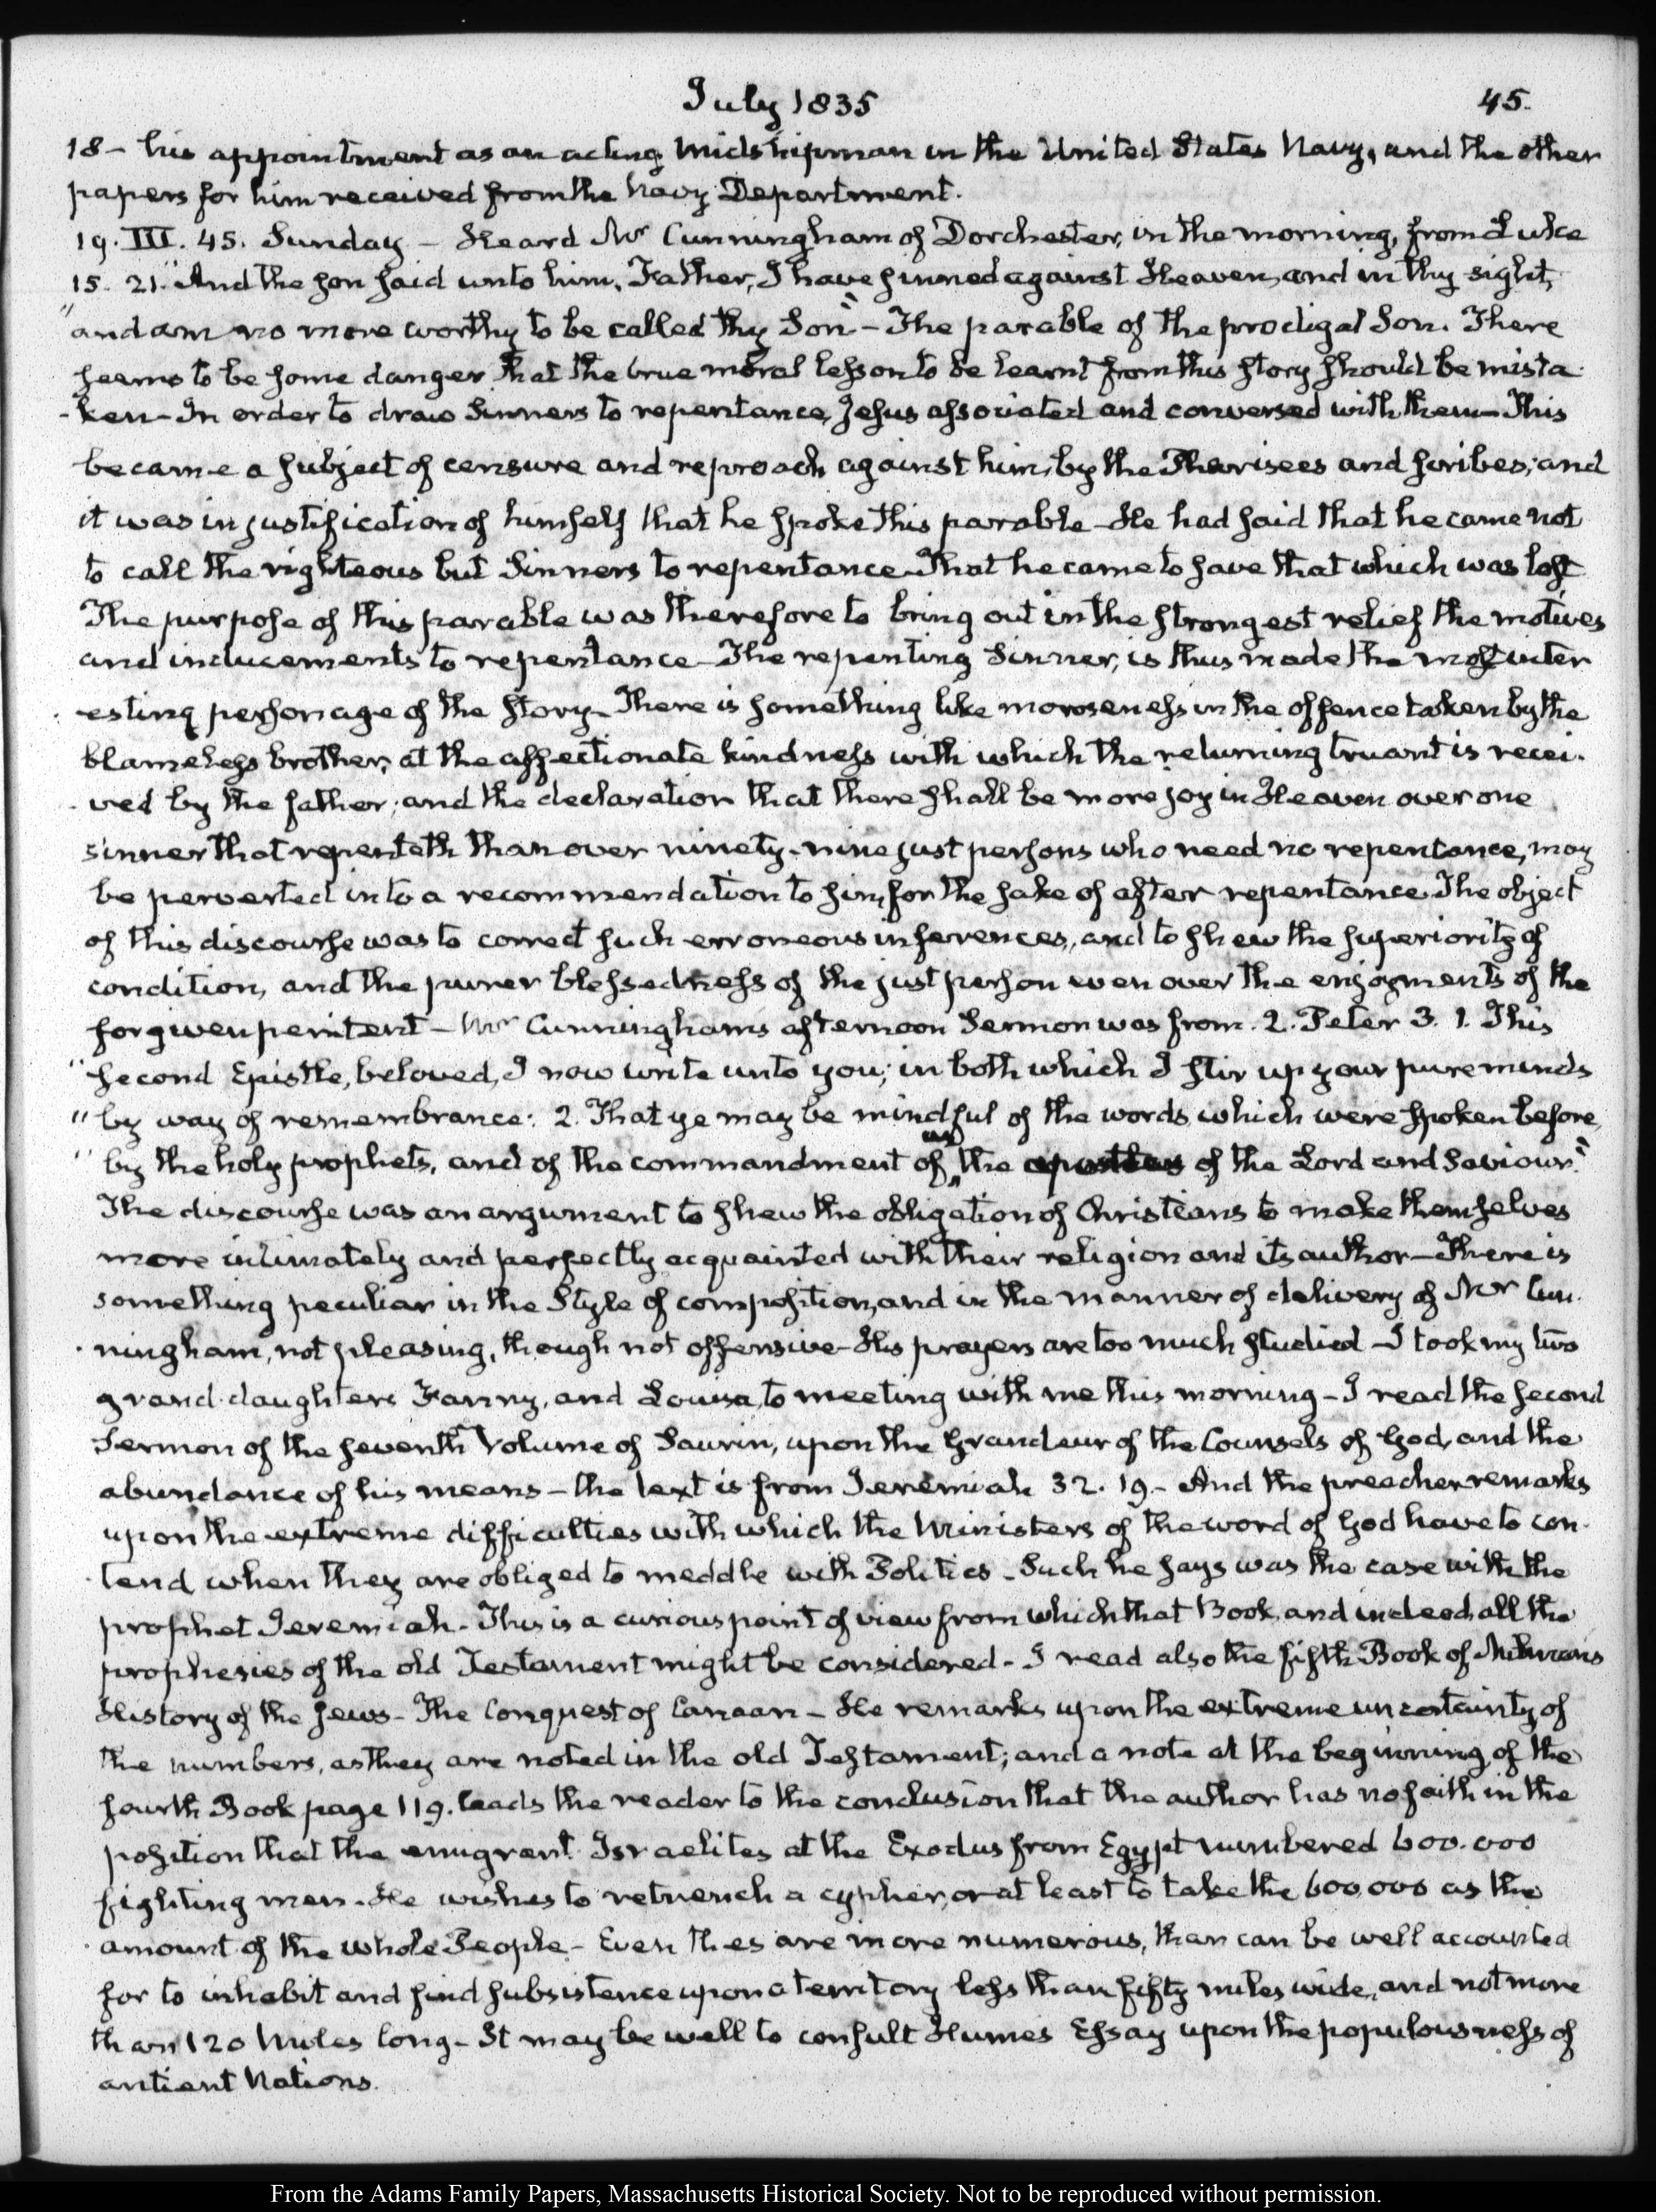 July 1835
45.
18 – his appointment as an acting Midshipman in the United States Navy, and the other
papers for him received from the Navy Department.
19. III. 45. Sunday – Heard Mr Cunningham of Dorchester, in the morning, from Luke
15. 21. "And the son said unto him, Father, I have sinned against Heaven, and in thy sight,
"and am no more worthy to be called thy Son" – The parable of the prodigal Son. There
seems to be some danger that the true moral lesson to be learnt from this story should be mista-
-ken – In order to draw Sinners to repentance, Jesus associated and conversed with them – This
became a subject of censure and reproach against him, by the Pharisees and scribes; and
it was in justification of himself that he spoke this parable – He had said that he came not
to call the righteous but Sinners to repentance – That he came to save that which was lost
The purpose of this parable was therefore to bring out in the strongest relief the motives
and inducements to repentance – The repenting Sinner, is thus made the most inter
esting personage of the story – There is something like moroseness in the offence taken by the
blameless brother, at the affectionate kindness with which the returning truant is recei-
-ved by the father; and the declaration that there shall be more joy in Heaven over one
sinner that repenteth than over ninety-nine just persons who need no repentance, may
be perverted into a recommendation to sin, for the sake of after repentance. The object
of this discourse was to correct such erroneous inferences, and to shew the superiority of
condition, and the purer blessedness of the just person even over the enjoyments of the
forgiven penitent – Mr Cunninghams afternoon Sermon was from. 2. Peter 3. 1. This
"second Epistle, beloved, I now write unto you; in both which I stir up your pure minds
"by way of remembrance: 2. That ye may be mindful of the words which were spoken before
"by the holy prophets, and of the commandment of us the apostles of the Lord and Saviour."
The discourse was an argument to shew the obligation of Christians to make themselves
more intimately and perfectly acquainted with their religion and its author – There is
something peculiar in the Style of composition, and in the manner of delivery of Mr Cun-
-ningham, not pleasing, though not offensive – His prayers are too much studied – I took my two
grand-daughters Fanny, and Louisa, to meeting with me this morning – I read the second
Sermon of the seventh Volume of Saurin, upon the Grandeur of the Counsels of God, and the
abundance of his means – the text is from Jeremiah 32. 19. – And the preacher remarks
upon the extreme difficulties with which the Ministers of the word of God have to con-
-tend when they are obliged to meddle with Politics – Such he says was the case with the
prophet Jeremiah. This is a curious point of view from which that Book, and indeed all the
prophesies of the old Testament might be considered – I read also the fifth Book of Milmans
History of the Jews – The Conquest of Canaan – He remarks upon the extreme uncertainty of
the numbers, as they are noted in the old Testament; and a note at the beginning of the
fourth Book page 119. leads the reader to the conclusion that the author has no faith in the
position that the emigrant Israelites at the Exodus from Egypt numbered 600.000
fighting men. He wishes to retrench a cypher, or at least to take the 600,000 as the
amount of the whole People – Even thes are more numerous, than can be well accounted
for to inhabit and find subsistence upon a territory less than fifty miles wide, and not more
than 120 Miles long – It may be well to consult Humes Essay upon the populousness of
antient Nations.
From the Adams Family Papers, Massachusetts Historical Society. Not to be reproduced without permission.